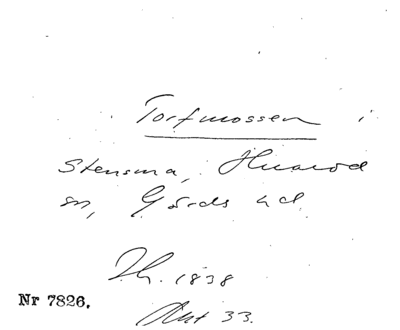 Torfmossen i
Stensma, Huarod
sn, Gärds hd
Th. 1838
Akt 33.
Nr 7826.